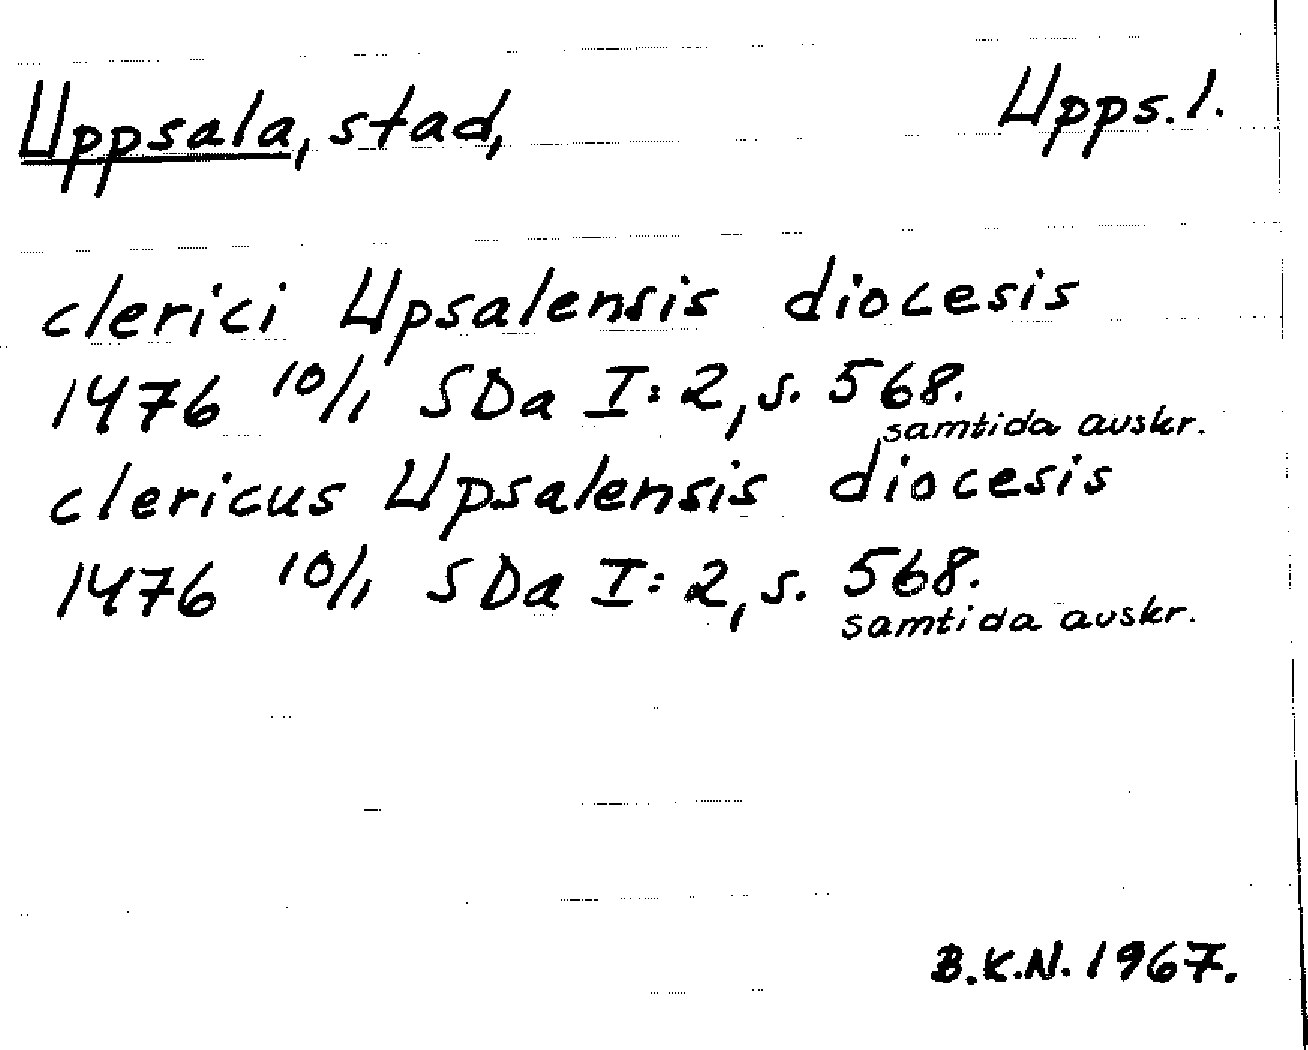 Uppsala, stad, Upps.l.
clerici Upsalensis diocesis
1476 10/1 SDa I:2, s. 568.
samtida avskr.
clericus Upsalensis diocesis
1476 10/1 SDa I:2, s. 568.
samtida avskr.
B.K.N. 1967.